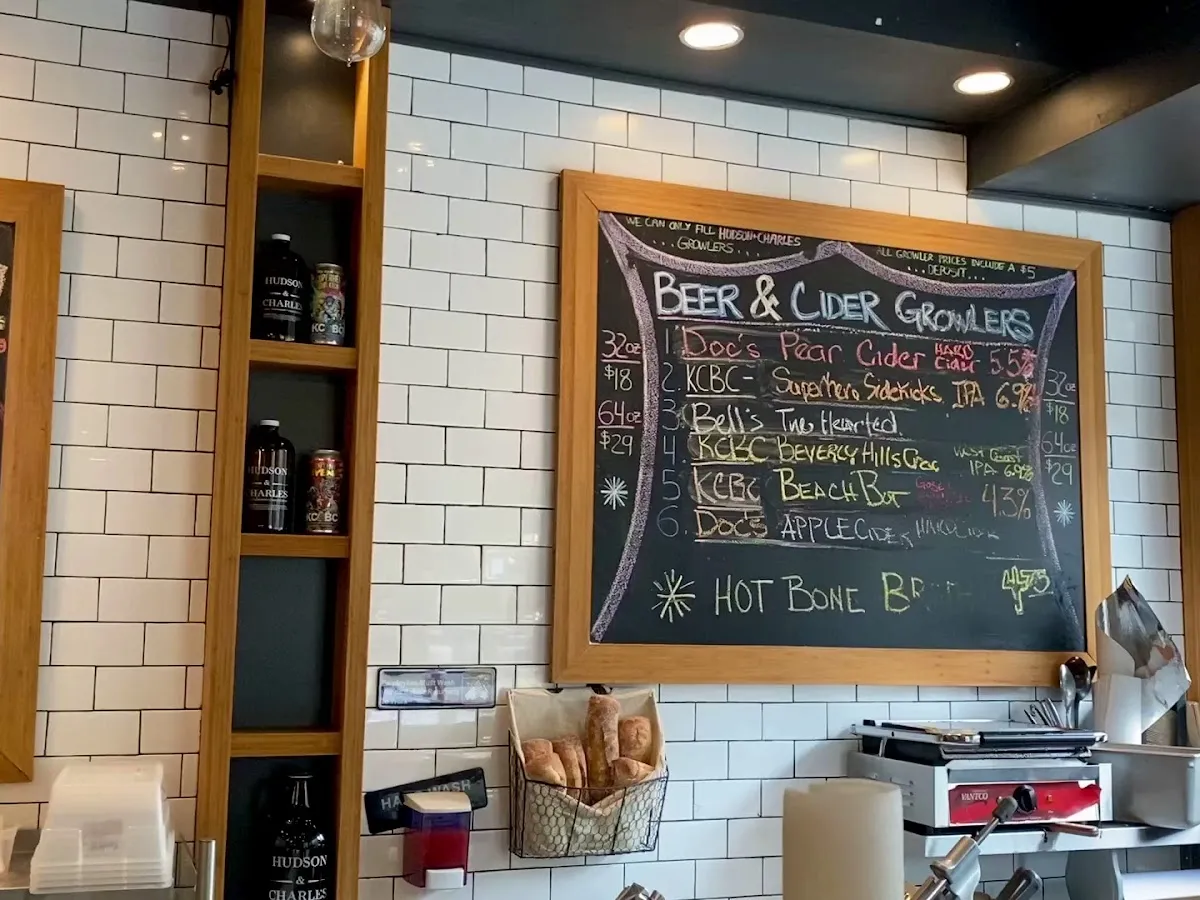 WE CAN ONLY FILL HUDSON+CHARLES
...GROWLERS...
ALL GROWLER PRICES INCLUDE A $5
...DEPOSIT...
BEER & CIDER GROWLERS
32oz
$18
64oz
$29
1. Doc's Pear Cider HARD Cider 5.5%
2. KCBC - Superhero Sidekicks IPA 6.9%
3. Bell's Two Hearted
4 KCBC BEVERLY HILLS West Coast IPA 6.9%
5 KCBC BEACH BUT GOSE 4.3%
6. Doc's APPLE CIDER HARD CIDER
32oz
$18
64oz
$29
HOT BONE 4.75
HUDSON
& CHARLES
KCBC
HUDSON
& CHARLES
KCBC
HUDSON
& CHARLES
HAND WASH
VANTCO